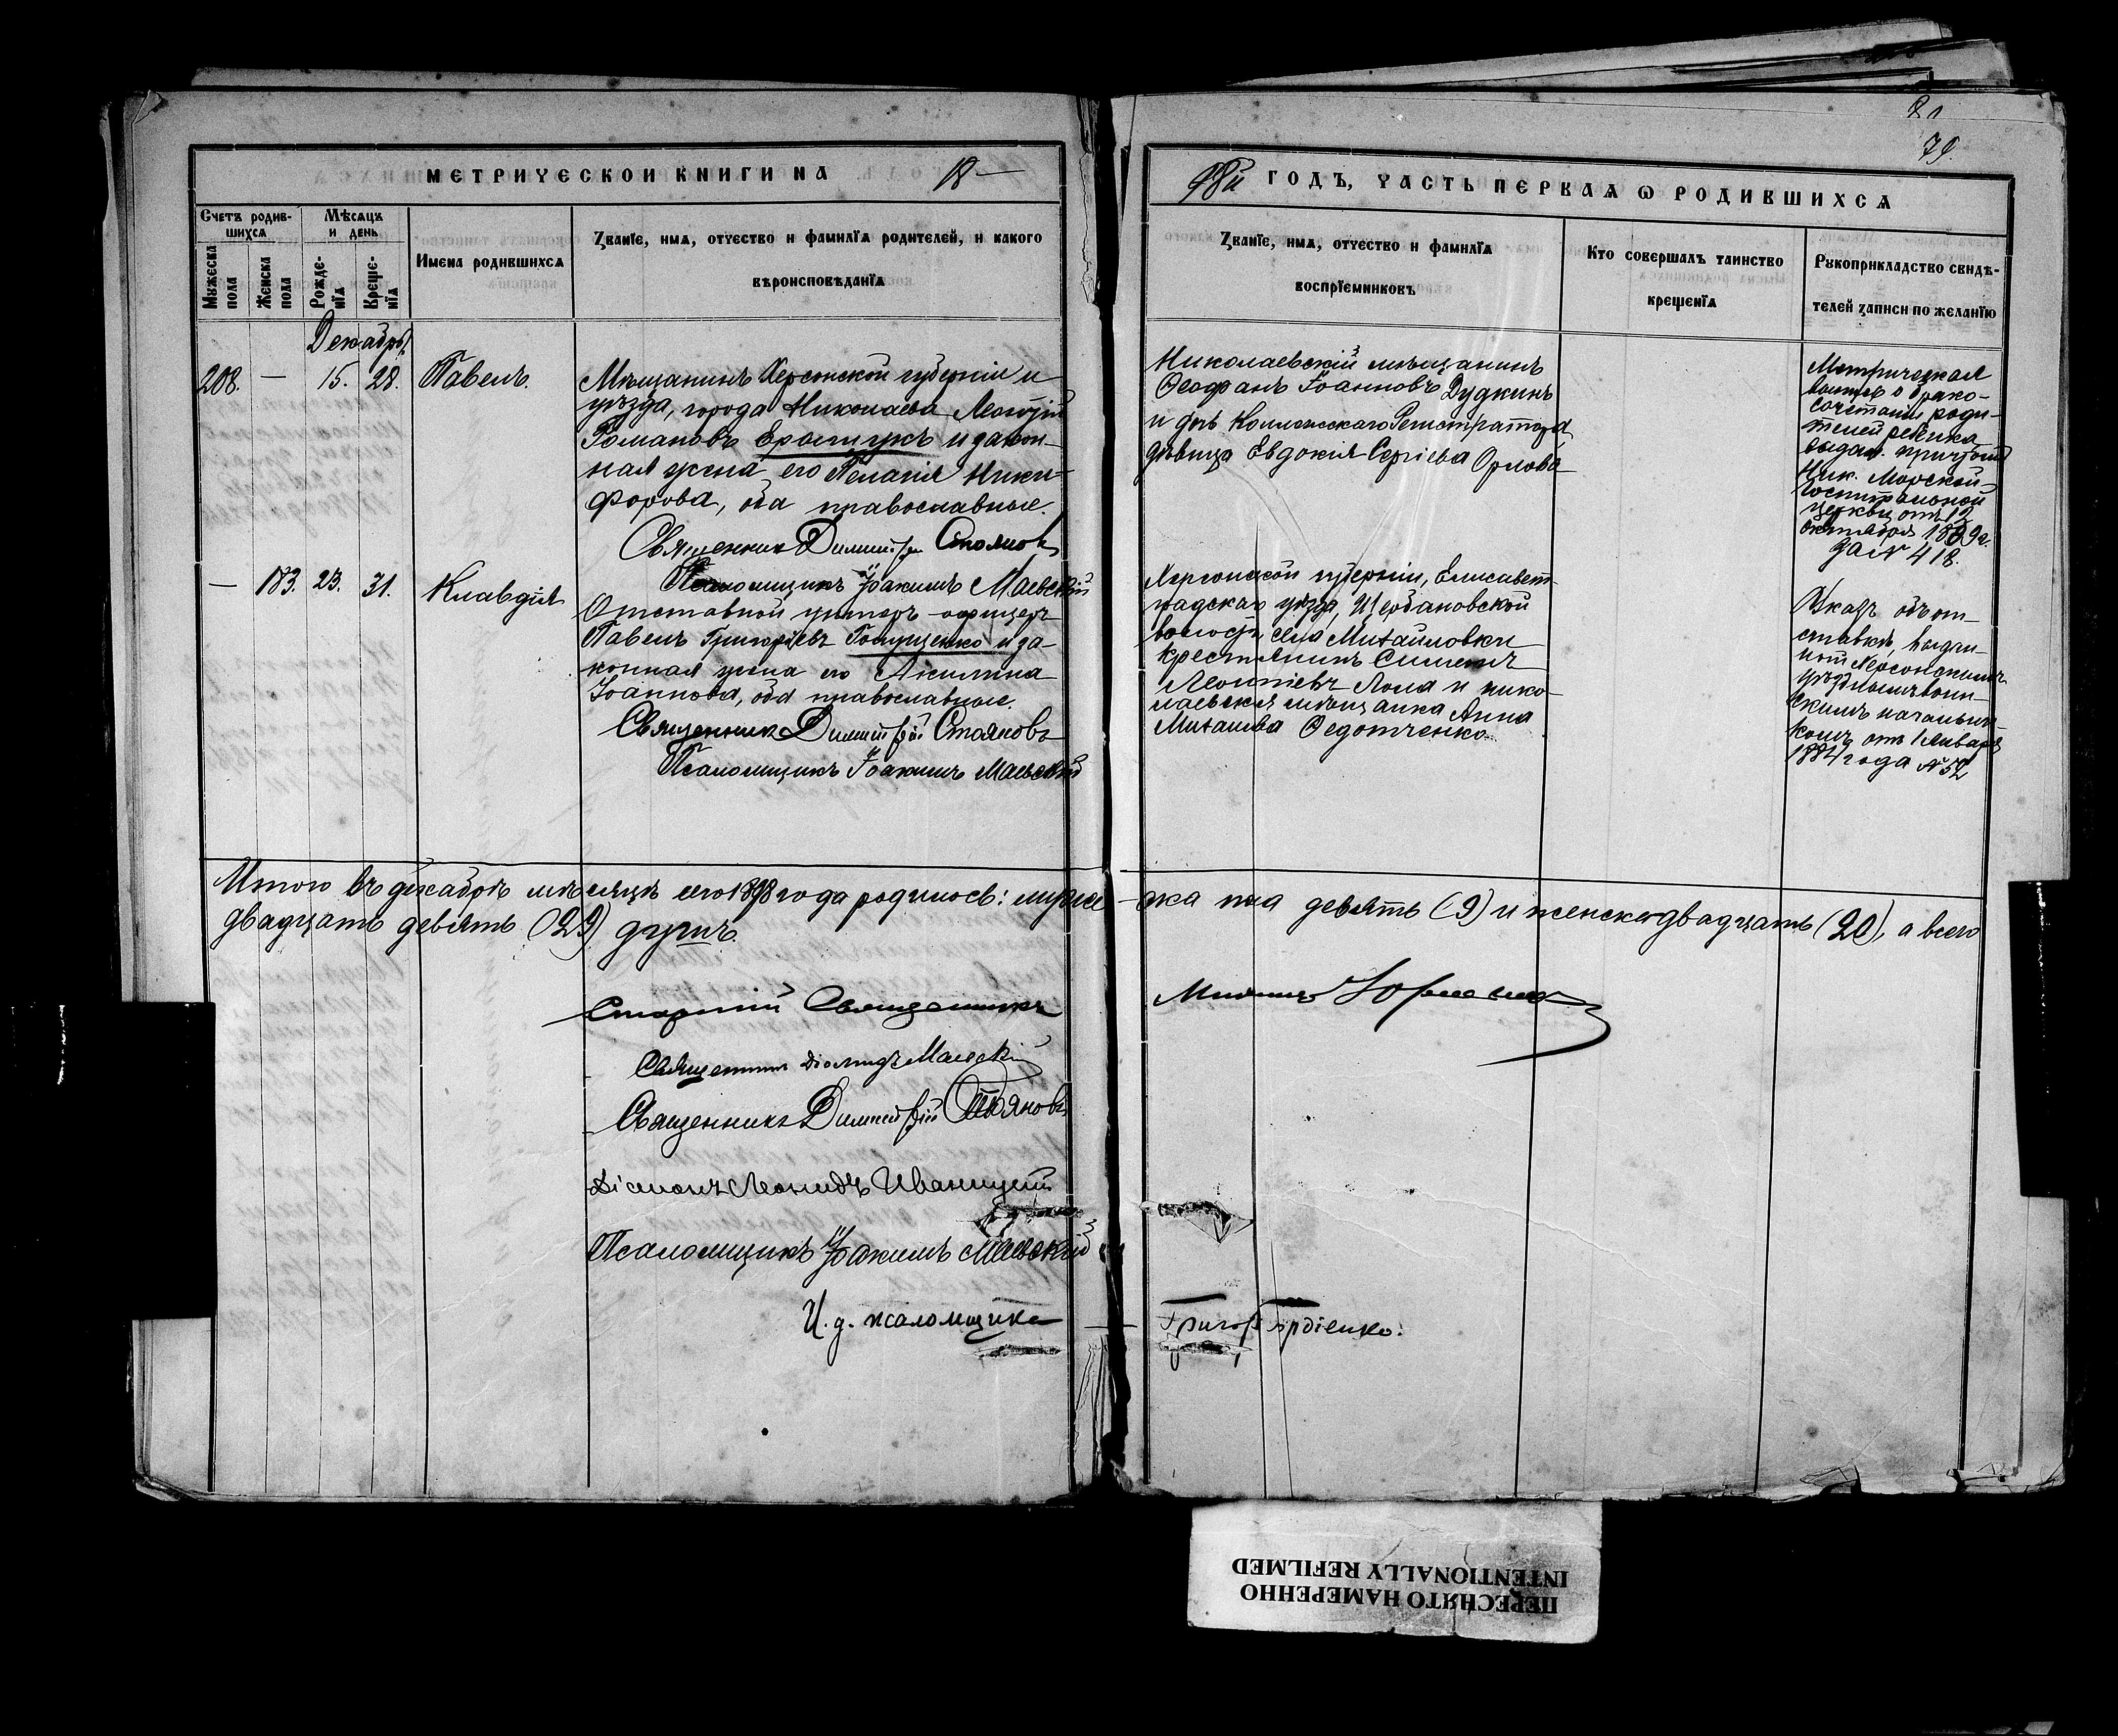 81
79.
МЕТРИЧЕСКОЙ КНИГИ НА 18—
98й ГОДЪ, ЧАСТЬ ПЕРВАЯ Ѡ РОДИВШИХСЯ
Счетъ родив-
шихся
Мужеска
пола
Женска
пола
Мѣсяцъ
и день
Рожде-
нія
Креще-
нія
Имена родившихся
Званіе, имя, отчество и фамилія родителей, и какого
вѣроисповѣданія
Званіе, имя, отчество и фамилія
воспріемниковъ
Кто совершалъ таинство
крещенія
Рукоприкладство свидѣ-
телей записи по желанію
Декабрь
208. — 15. 28. Павелъ.
Мѣщанинъ Херсонской губерніи и
уѣзда, города Николаева Леонтій
Романовъ и закон-
ная жена его Пелагія Ники-
форова, оба православные.
Священникъ Димитрій Стояновъ
Псаломщикъ Іоакимъ Маевскій
Николаевскій мѣщанинъ
Ѳеофанъ Іоанновъ Дудкинъ
и дочь Коллежскаго Регистратора
дѣвица Евдокія Сергіева Орлова
Метрическая
выпись о брако-
сочетаніи роди-
телей ребенка
выдан. причтомъ
Ник. Морской
госпитальной
церкви отъ 12
октября 1889 г.
за № 418.
— 183. 23. 31. Клавдія
Отставной унтеръ-офицеръ
Павелъ Григорьевъ и за-
конная жена его Акилина
Іоаннова, оба православные.
Священникъ Димитрій Стояновъ
Псаломщикъ Іоакимъ Маевскій
Херсонской губерніи, Елисавет-
градскаго уѣзда, Щербановской
волости, села Михайловки
крестьянинъ Симеонъ
Леонтіевъ Лола и нико-
лаевская мѣщанка Анна
Михаилова Ѳедотченко
Указъ объ от-
ставкѣ, выдан-
ный Херсонскимъ
уѣзднымъ воин-
скимъ начальни-
комъ отъ 1 января
1884 года № 52
Итого въ декабрѣ мѣсяцѣ сего 1898 года родилось: муже-ска пола девять (9) и женска двадцать (20), а всего
двадцать девять (29) душъ.
Старшій Священникъ Михаилъ
Священникъ Діомидъ Маевскій
Священникъ Димитрій Стояновъ
Діаконъ Леонидъ Иваницкій
Псаломщикъ Іоакимъ Маевскій
И. д. псаломщика Григорій
ПЕРЕСНЯТО НАМЕРЕННО
INTENTIONALLY REFILMED